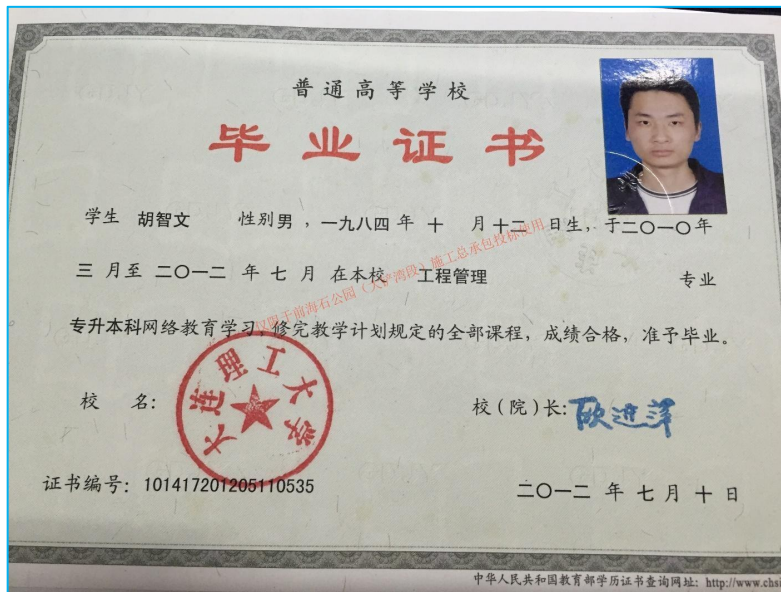 普通高等学校
毕业证书
学生 胡智文 性别男，一九八四年 十 月十二 日生，于二〇一〇年
三 月至 二〇一二 年 七 月 在本校 工程管理 专业
专升本科网络教育学习，修完教学计划规定的全部课程，成绩合格，准予毕业。
仅限于前海石公园（大铲湾段）施工总承包投标使用
校 名：
大连理工大学
校（院）长：欧进萍
证书编号：101417201205110535
二〇一二 年 七 月 十 日
中华人民共和国教育部学历证书查询网址：http://www.chsi